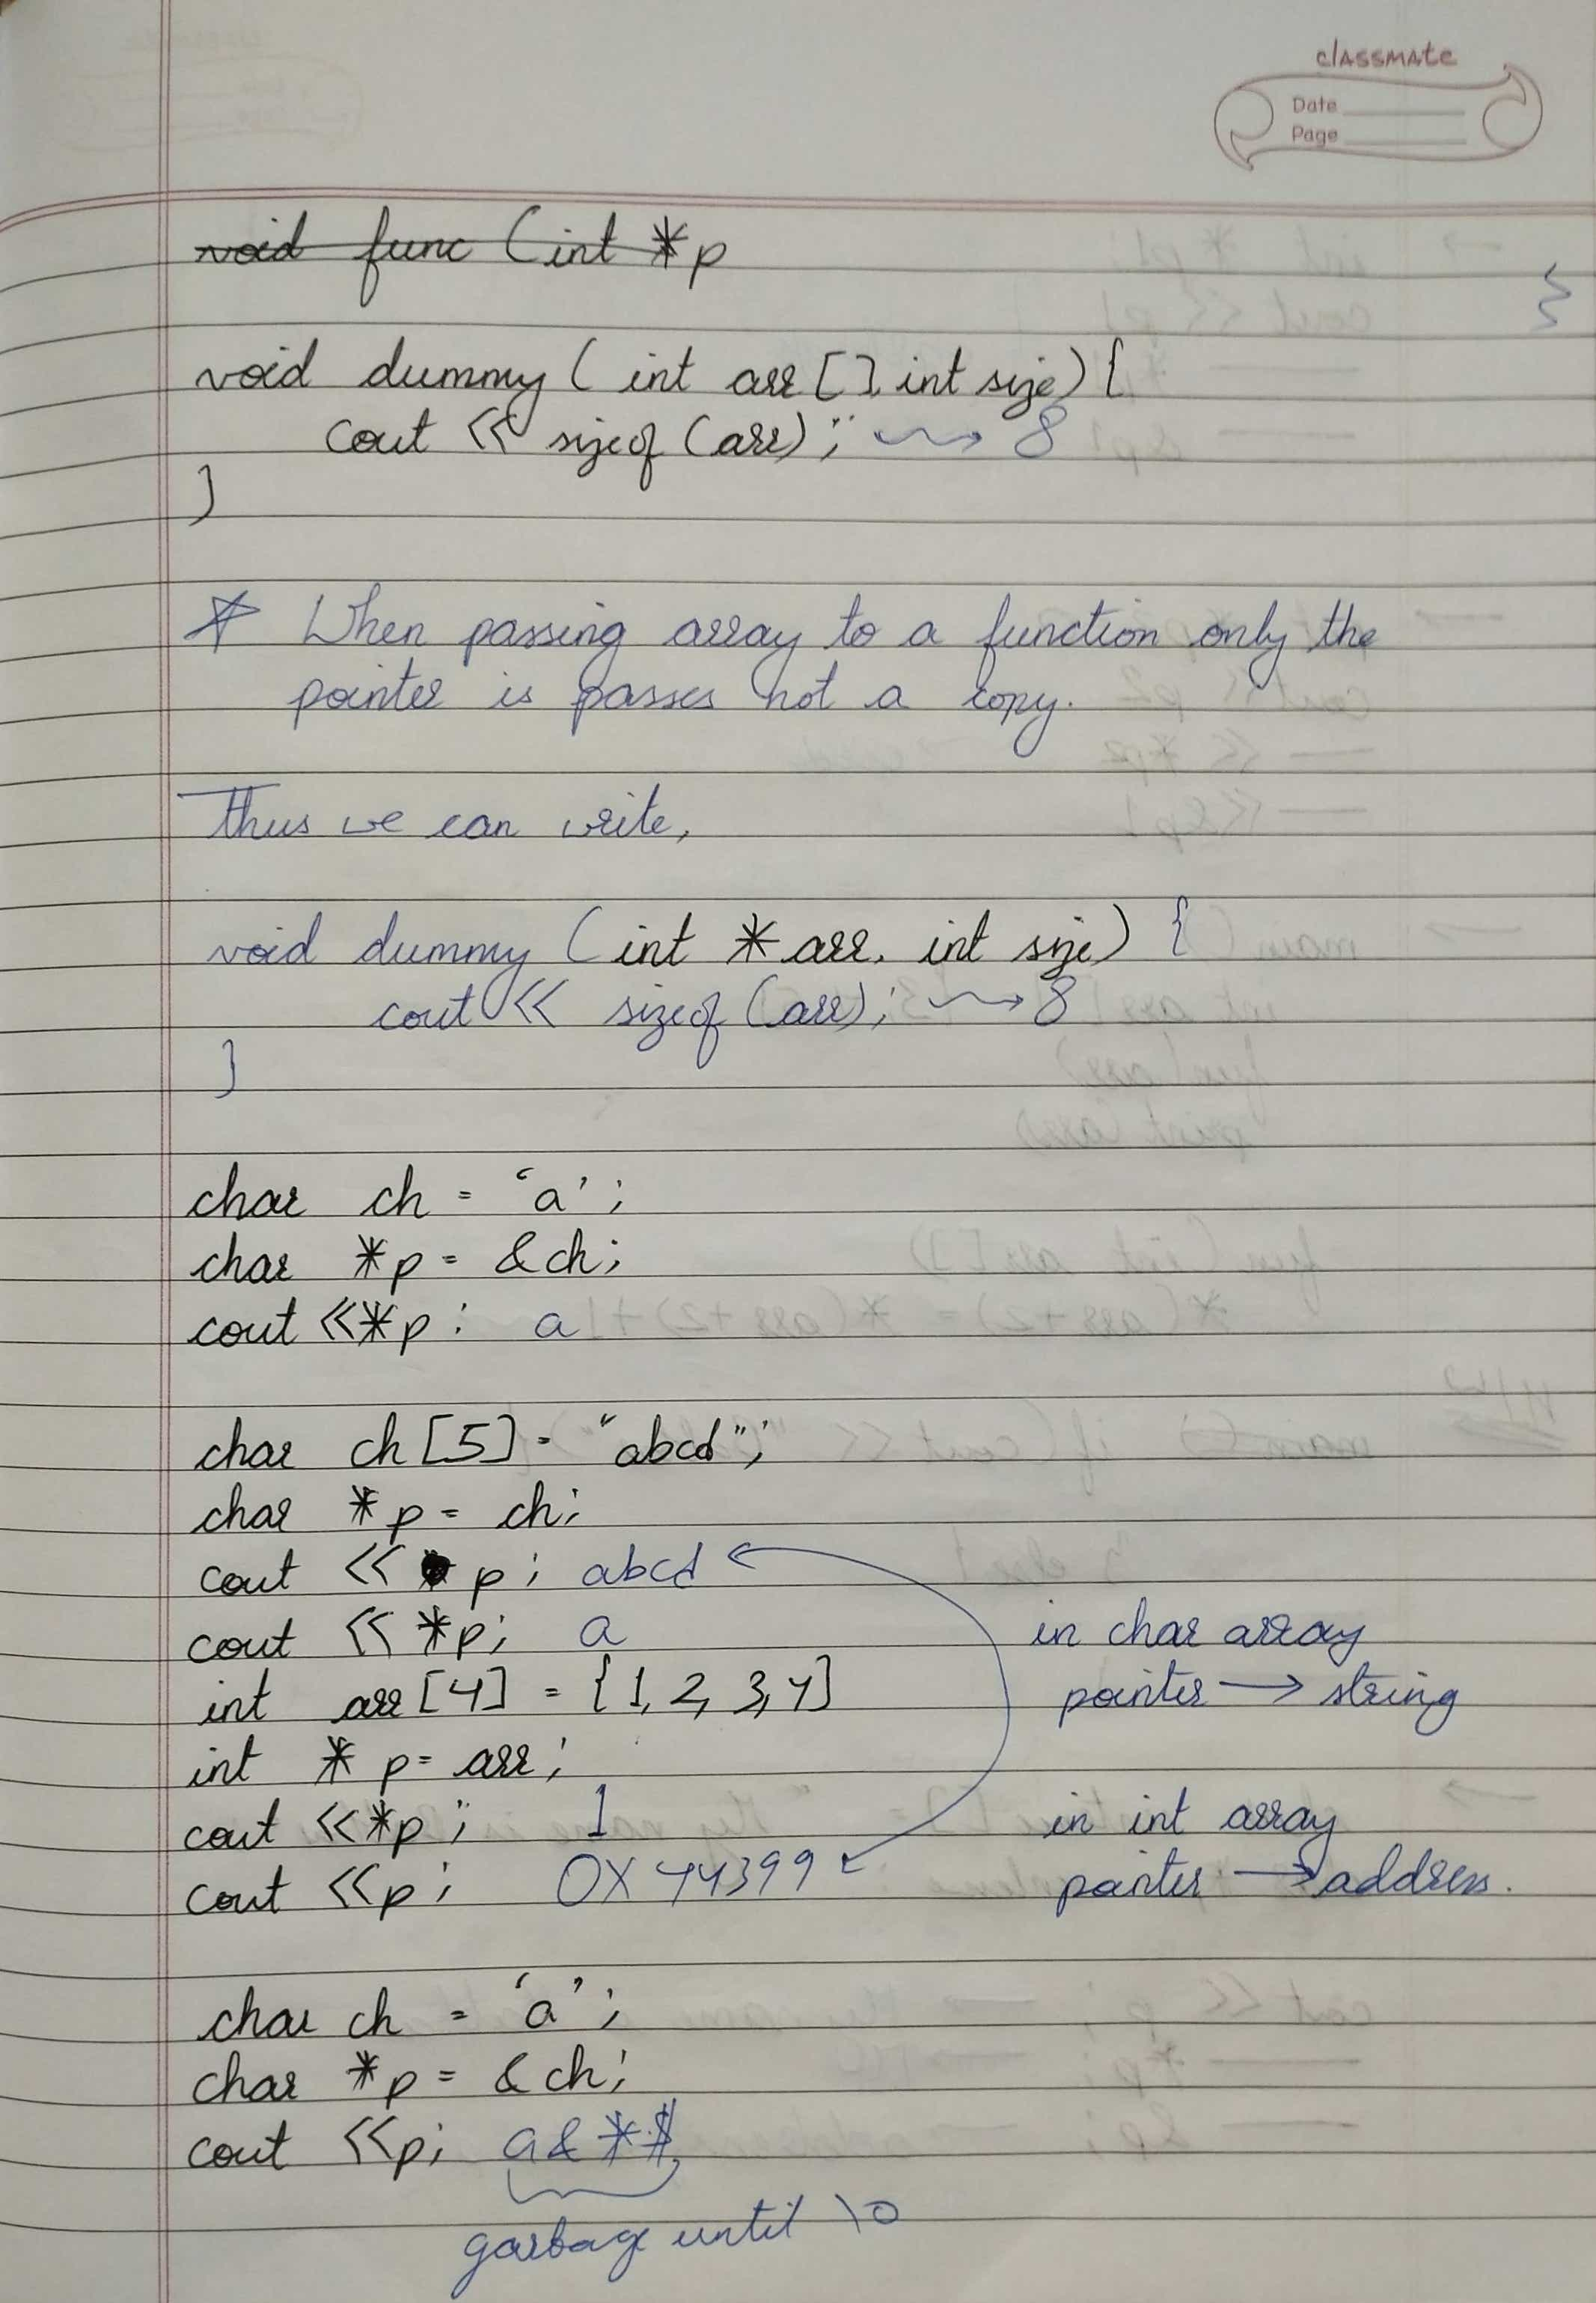 classmate
Date
Page
void func (int *p
void dummy ( int arr [ ], int size) {
cout << sizeof (arr) ; 8
}
* When passing array to a function only the
pointer is passes not a copy.
Thus we can write,
void dummy (int * arr, int size) {
cout << sizeof (arr) ; 8
}
char ch = 'a' ;
char *p = &ch ;
cout << *p ; a
char ch [5] = "abcd" ;
char * p = ch ;
cout << p ; abcd
cout << *p ; a
in char array
int arr [4] = {1, 2, 3, 4}
pointer → string
int * p = arr ;
cout << *p ; 1
in int array
cout << p ; 0X44399
pointer → address.
char ch = 'a' ;
char *p = & ch ;
cout << p ; a&*$
garbage until \0